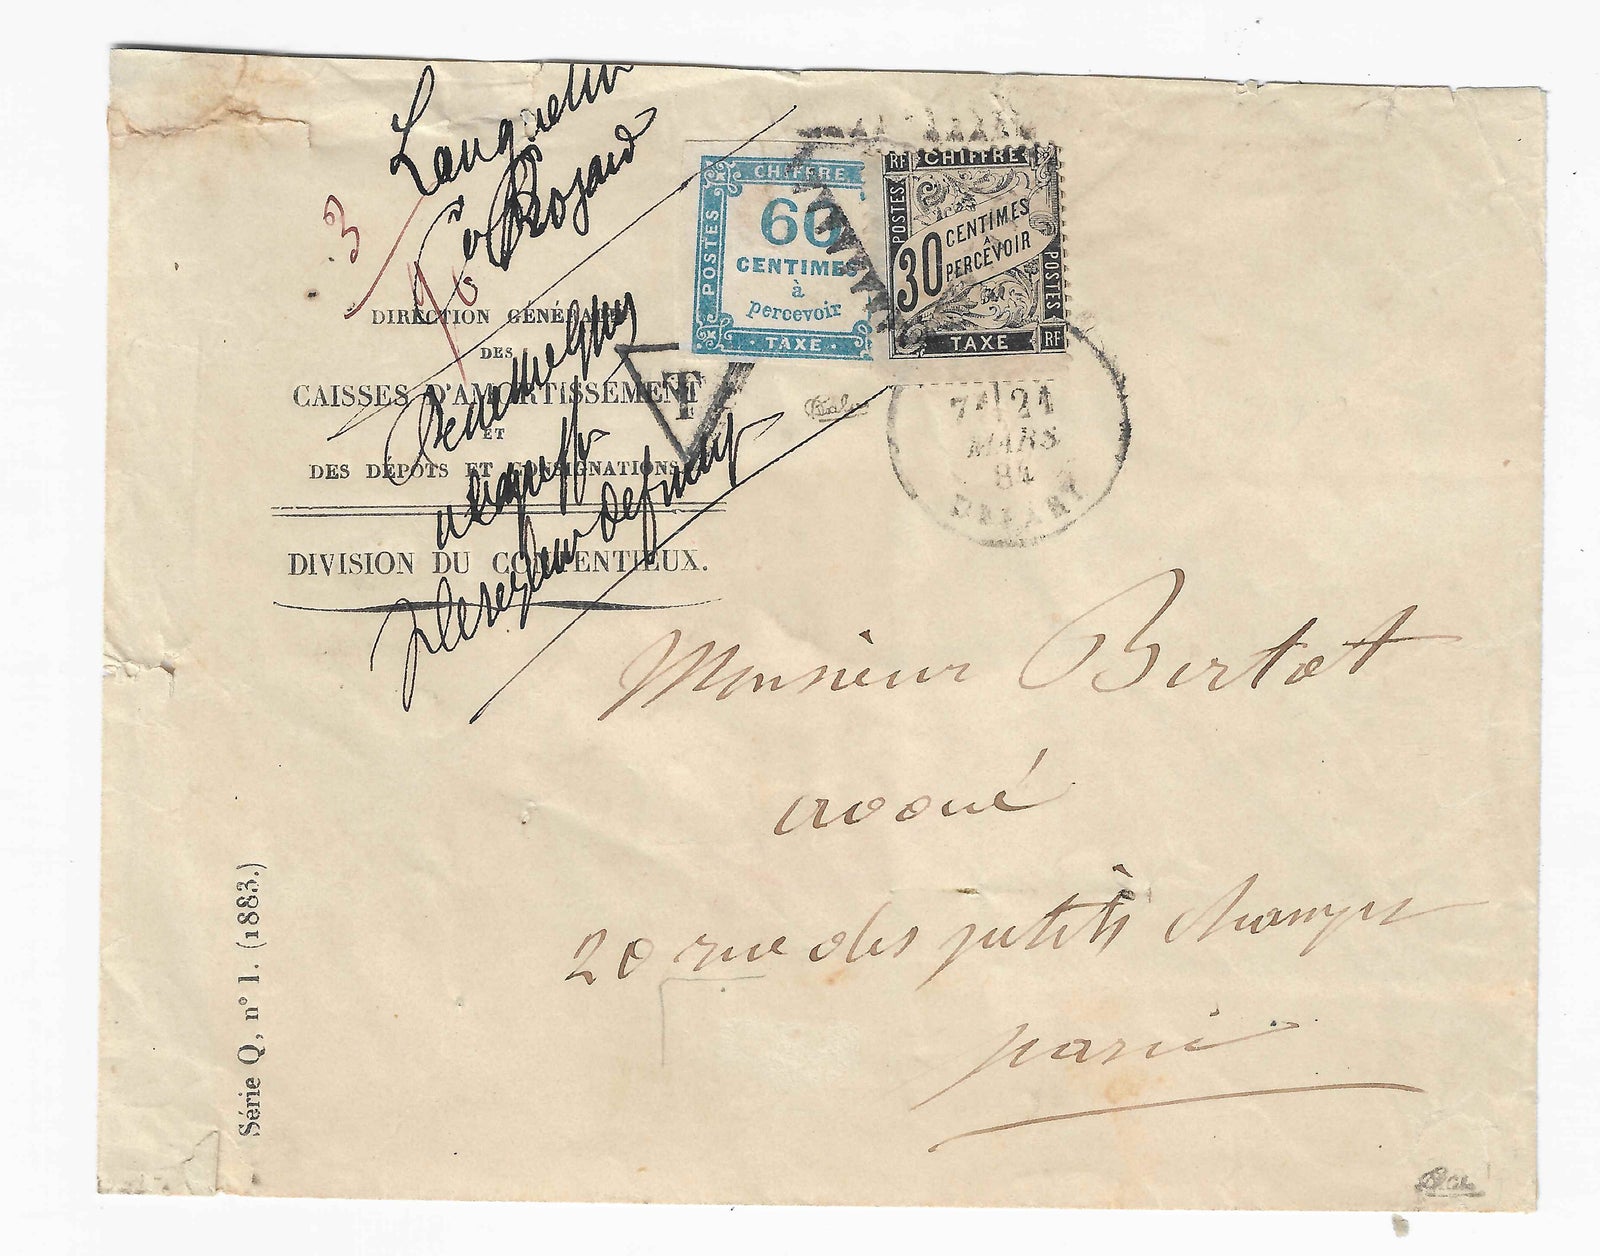 Languelin
Rozard
3
90
DIRECTION GÉNÉRALE
DES
CAISSES D'AMORTISSEMENT
ET
DES DÉPOTS ET CONSIGNATIONS
DIVISION DU CONTENTIEUX.
CHIFFRE
POSTES
60
CENTIMES
à
percevoir
TAXE
RF CHIFFRE
POSTES
30 CENTIMES
A
PERCEVOIR
POSTES
TAXE RF
T
7E 21
MARS
84
DEPART
Monsieur Bertot
avoué
20 rue des petits champs
paris
Série Q, n° 1. (1883.)